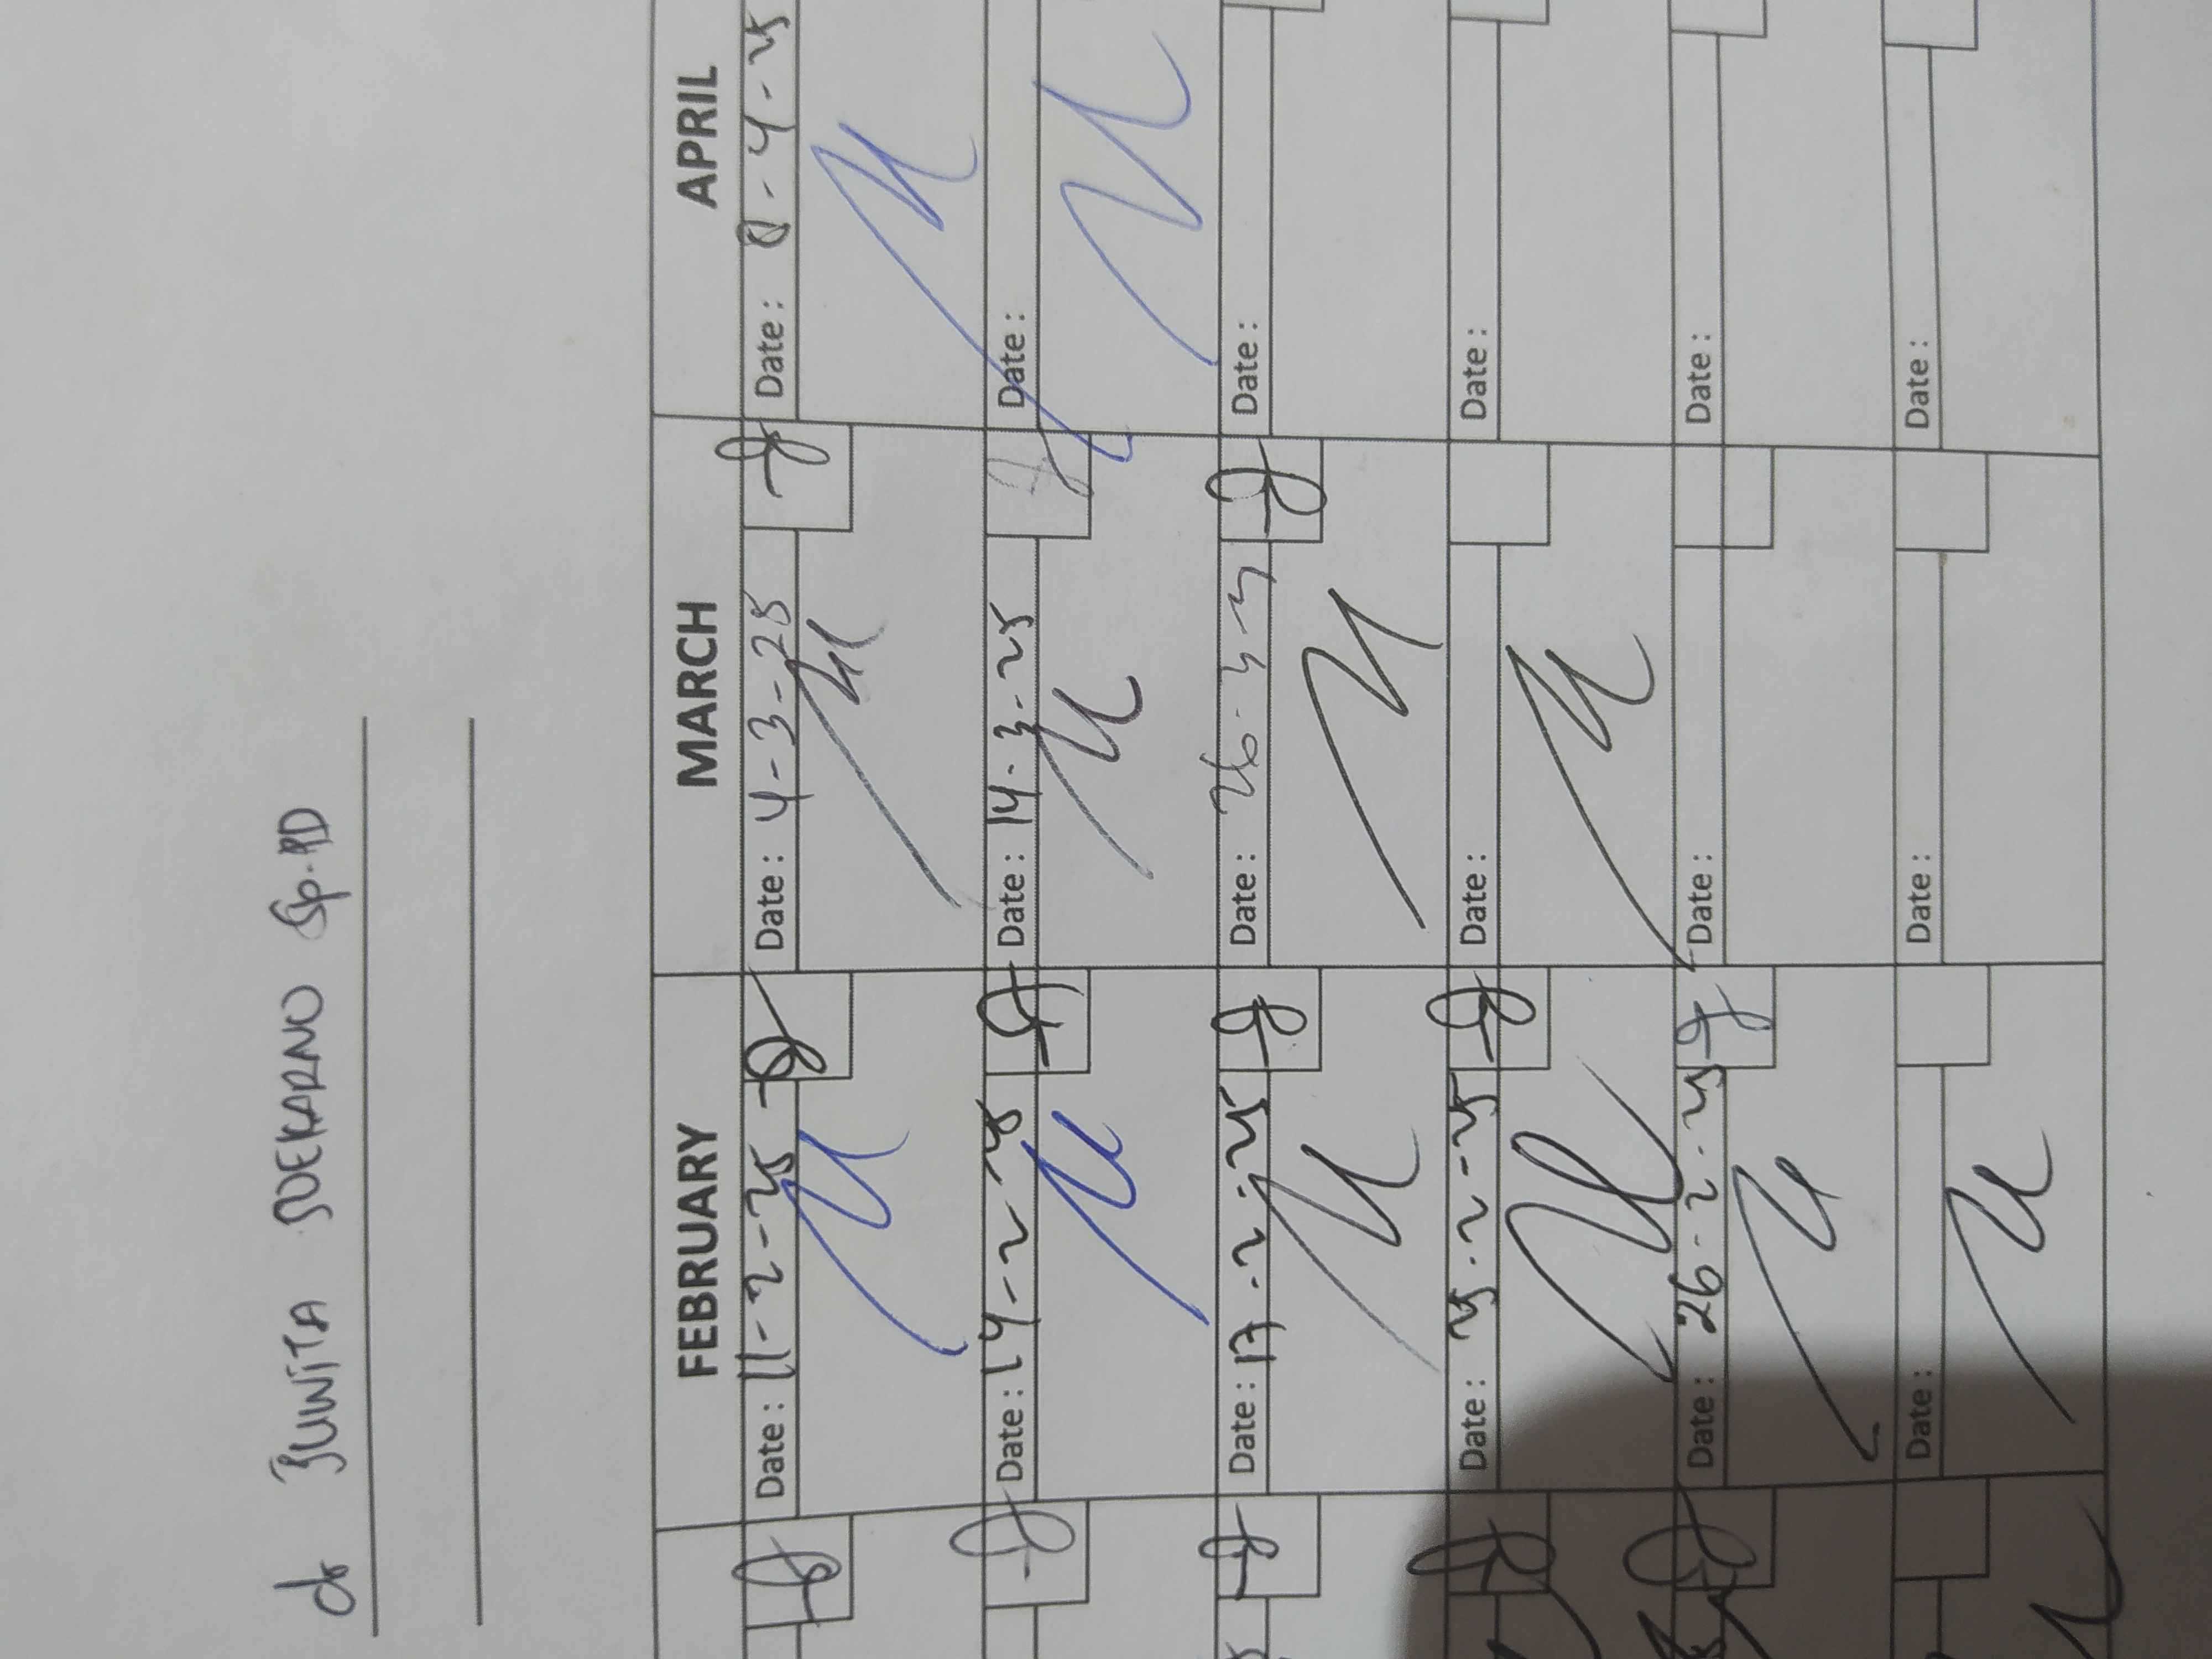 dr Yunita Soekarno Sp.PD
FEBRUARY MARCH APRIL
Date : 11-2-25 Date : 4-3-25 Date : 8-4-25
Date : 14-2-25 Date : 14-3-25 Date :
Date : 17-2-25 Date : 26-3-25 Date :
Date : 25-2-25 Date : Date :
Date : 26-2-25 Date : Date :
Date : Date : Date :